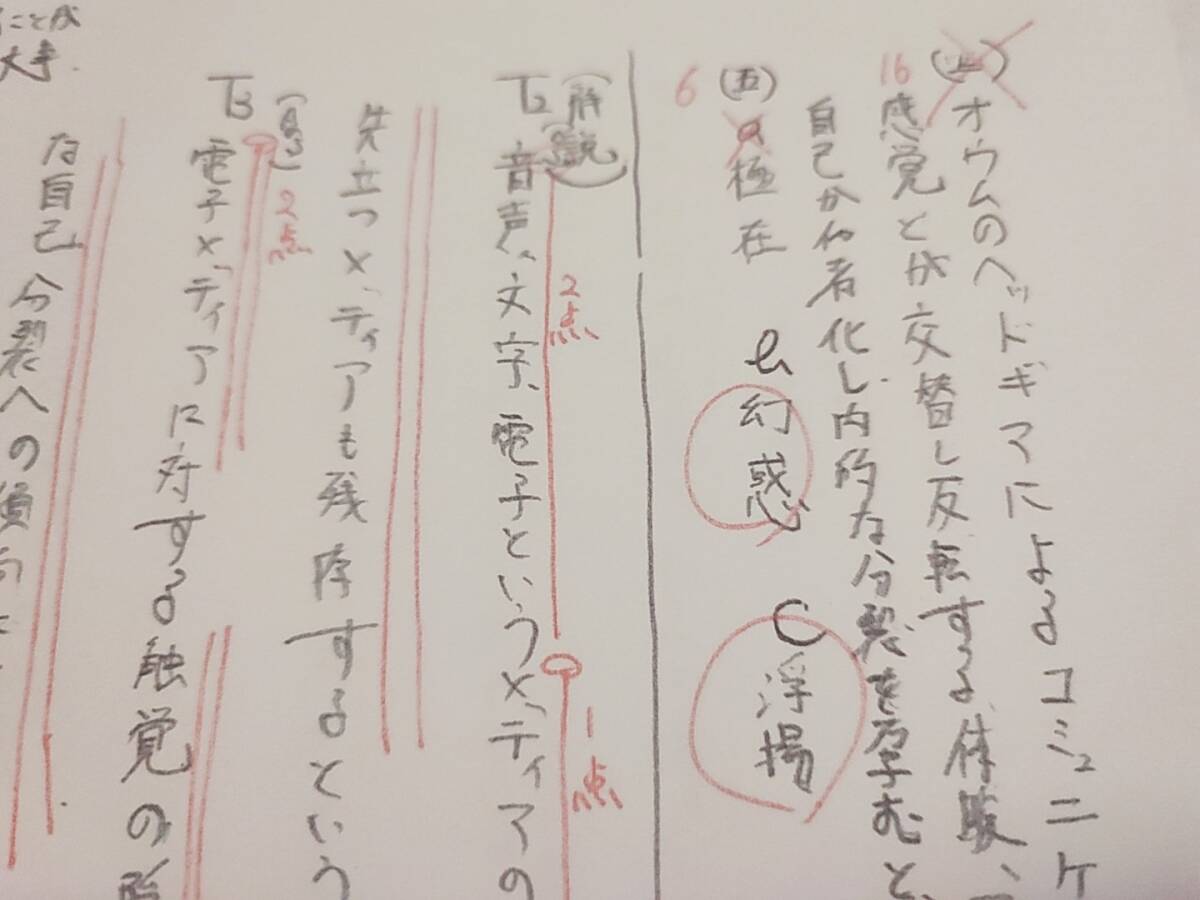 オウムのヘッドギアによるコミュニケ
16 感覚とが交替し反転する体験、
自己が他者化し内的な分裂を孕むと、
6 (五)
a 極在 b 幻惑 c 浮揚
(解説)
T2 音声、文字、電子というメディアの
2点
1点
先立つメディアも残存するという
T3 電子メディアに対する触覚の
2点
な自己分裂への傾向
ことが
大事.